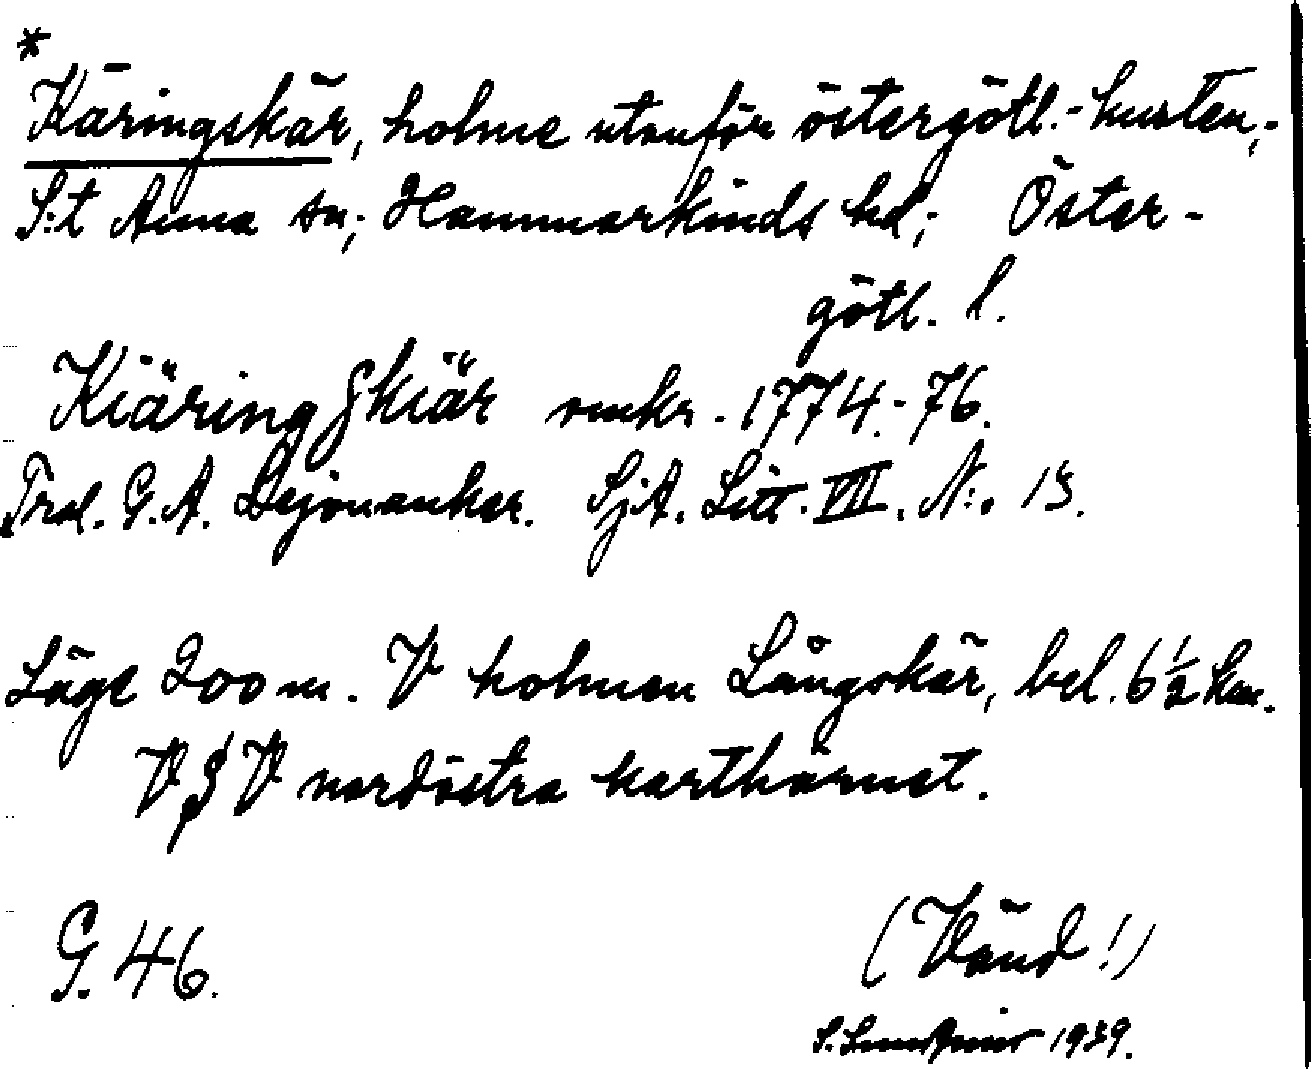 *
Käringskär, holme utanför östergötl.-kusten,-
S:t Anna sn; Hammarkinds hd; Öster-
götl. l.
KiäringSkiär omkr. 1774-76.
Trol. G. A. Dejonanker. SjA. Litt. VIII. N:o 13.
Läge 200 m. V holmen Långskär, bel. 6 1/2 km.
V S V nordöstra karthörnet.
G. 46.
(Vänd!)
S. 1939.